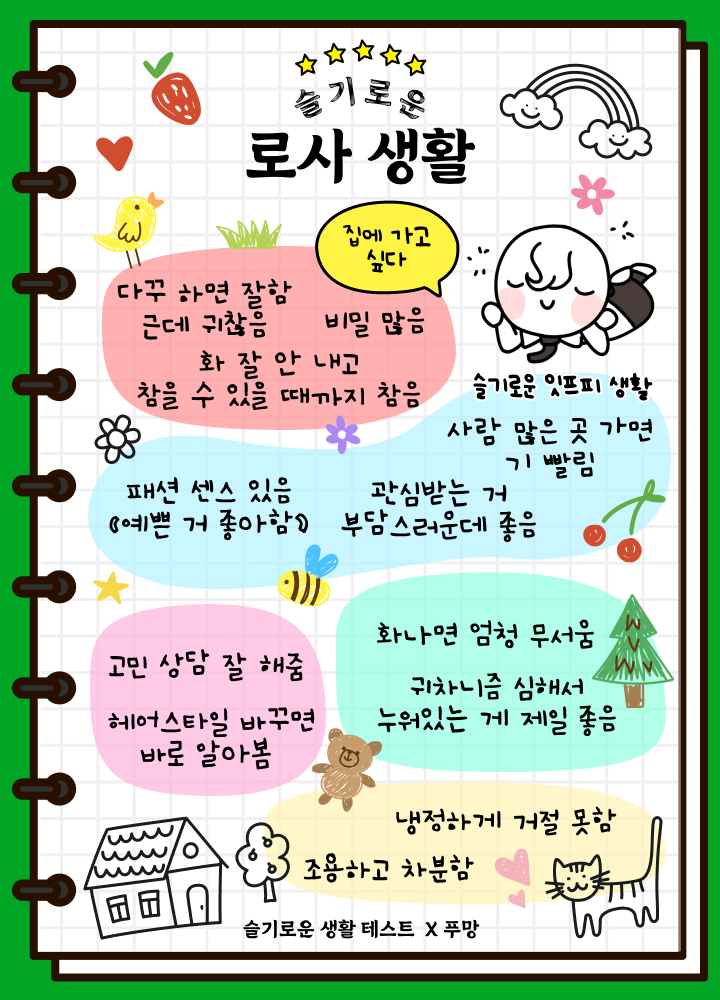 슬기로운
로사 생활
집에 가고
싶다
다꾸 하면 잘함
근데 귀찮음
비밀 많음
화 잘 안 내고
참을 수 있을 때까지 참음
슬기로운 잇프피 생활
사람 많은 곳 가면
기 빨림
패션 센스 있음
(예쁜 거 좋아함)
관심받는 거
부담스러운데 좋음
고민 상담 잘 해줌
헤어스타일 바꾸면
바로 알아봄
화나면 엄청 무서움
귀차니즘 심해서
누워있는 게 제일 좋음
냉정하게 거절 못함
조용하고 차분함
슬기로운 생활 테스트 X 푸망